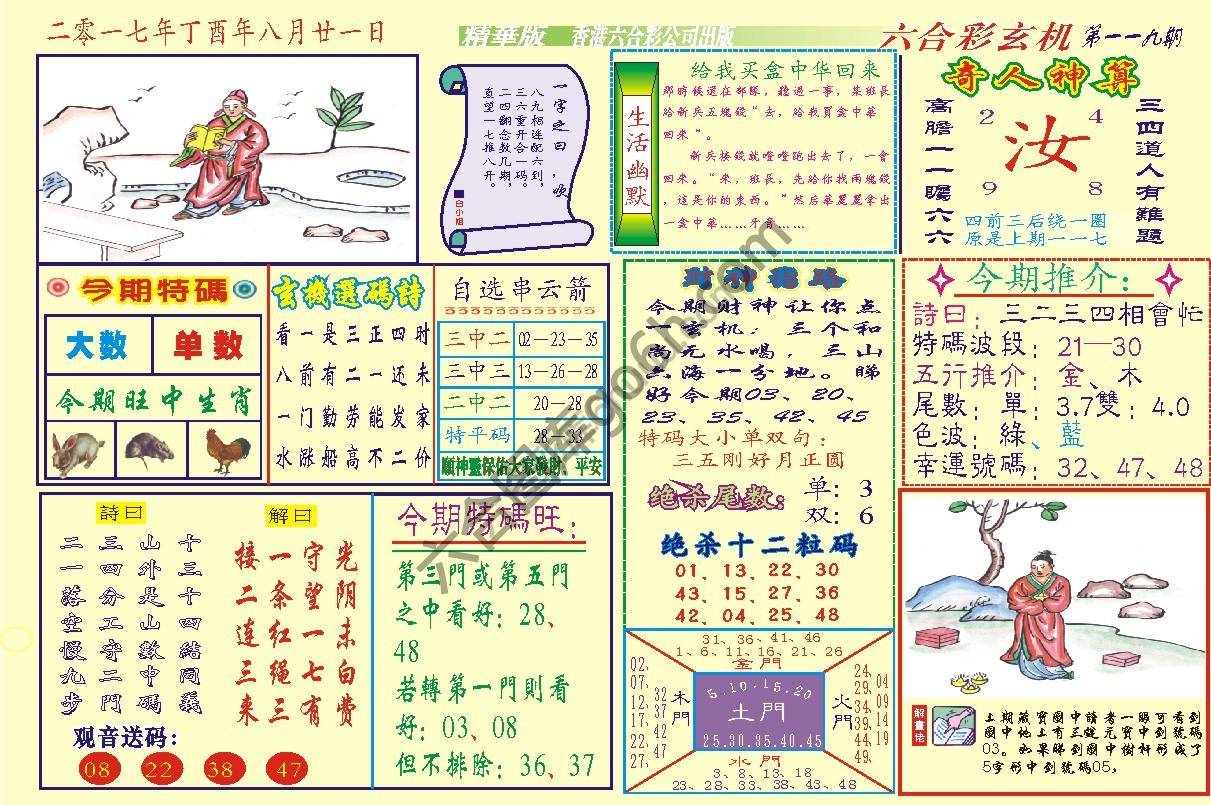 二零一七年丁酉年八月廿一日
精華版 香港六合彩公司出版
六合彩玄机 第一一九期
一字之曰，吹
八九相连配六到，
三六重开合一码。
二四翻念教几期，
直望一七推八开。
白小姐
生活幽默
给我买盒中华回来
那時候還在部隊，聽過一事，某班長
给新兵五塊錢“去，给我買盒中華
回來“。
新兵接錢就噔噔跑出去了，一會
回来。“来，班長，先给你找兩塊錢
，這是你的東西。“然后華麗麗拿出
一盒中華……牙膏……
奇人神算
高膽一一暖六六
2 4
汝
9 8
三四道人有難題
四前三后绕一圈
原是上期一一七
今期特碼
大数 单数
今期旺中生肖
玄機選碼詩
看一是三正四时
八前有二一还未
一门勤劳能发家
水涨船高不二价
自选串云箭
三中二 02—23—35
三中三 13—26—28
二中二 20—28
特平码 28—33
願神靈保佑大家發財、平安
財神飛路
今期财神让你点
一玄机：三个和
尚无水喝，三山
五海一分地。睇
好今期03、20、
23、35、42、45
特码大小单双句：
三五刚好月正圆
绝杀尾数：
单：3
双：6
绝杀十二粒码
01、13、22、30
43、15、27、36
42、04、25、48
今期推介：
詩曰：三二三四相會忙
特碼波段：21—30
五行推介：金、木
尾數：單：3.7雙：4.0
色波：綠、藍
幸運號碼：32、47、48
詩曰
十三十四結同義
山外是山數中碼
三四分工守二門
二一落空慢九步
解曰
光阴未白费
守望一七有
一条红绳三
接二连三来
观音送码：
08 22 38 47
今期特碼旺：
第三門或第五門
之中看好：28、
48
若轉第一門則看
好：03、08
但不排除：36、37
31、36、41、46
1、6、11、16、21、26
金門
02、07、12、17、22、27、
32、37、42、47
木門
5.10.15.20
土門
25.30.35.40.45
火門
24、29、34、39、44、49、
04、09、14、19
水門
3、8、13、18
23、28、33、38、43、48
解畫佬
上期藏寶圖中讀者一眼可看到
圖中地上有三錠元寶中到號碼
03。如果睇到圖中樹杆形成了
5字形中到號碼05，
六合图库go6h.com